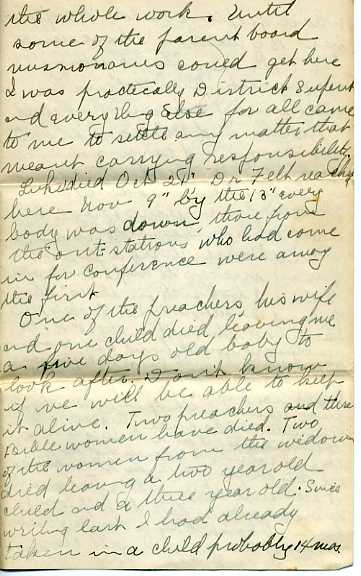 the whole work. Until
some of the parent board
missionaries could get here
I was practically District Supent
and everything else for all came
to me to settle any matter that
meant carrying responsibility
died Oct 29" Dr Felt reachg
here Nov 9" by the 13" every
body was down, those from
the out-stations who had come
in for conference were among
the first.
One of the preachers his wife
and one child died leaving me
a five days old baby to
look after. Don't know
if we will be able to keep
it alive. Two preachers and three
Bible women have died. Two
of the women from the widows
died leaving a two year old
child and a three year old. Since
writing last I had already
taken in a child probably 14 mos.